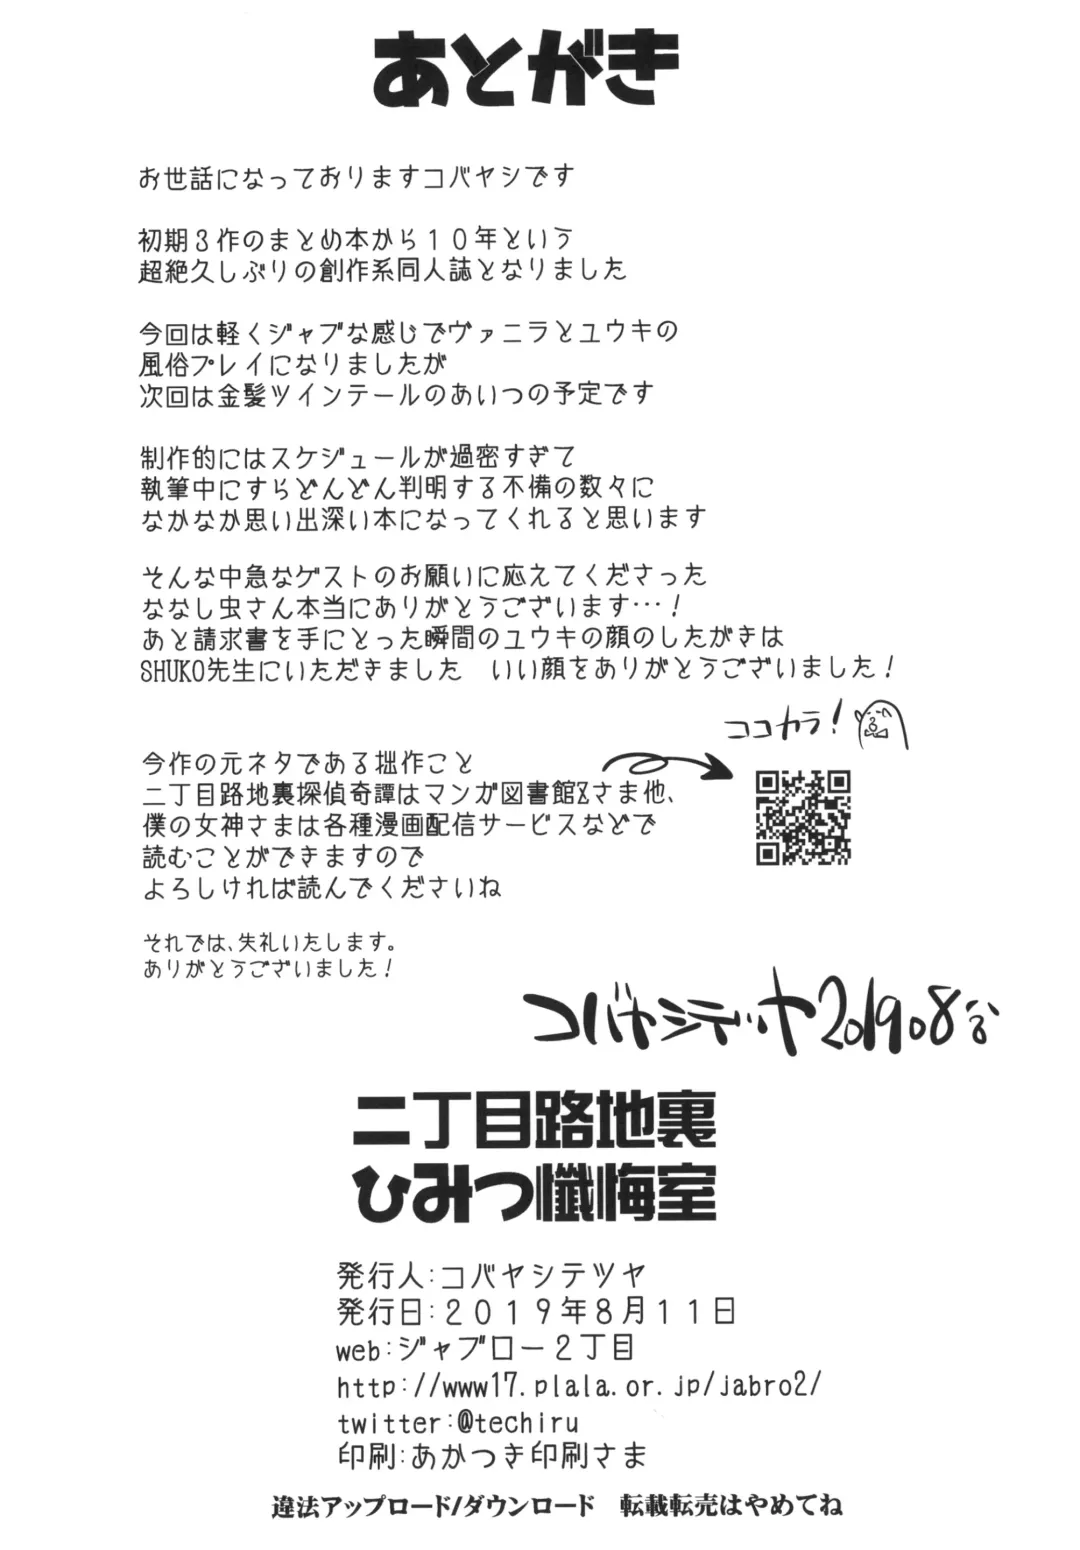 あとがき
お世話になっておりますコバヤシです
初期３作のまとめ本から１０年という
超絶久しぶりの創作系同人誌となりました
今回は軽くジャブな感じでヴァニラとユウキの
風俗プレイになりましたが
次回は金髪ツインテールのあいつの予定です
制作的にはスケジュールが過密すぎて
執筆中にすらどんどん判明する不備の数々に
なかなか思い出深い本になってくれると思います
そんな中急なゲストのお願いに応えてくださった
ななし虫さん本当にありがとうございます…！
あと請求書を手にとった瞬間のユウキの顔のしたがきは
SHUKO先生にいただきました　いい顔をありがとうございました！
ココカラ！
今作の元ネタである拙作こと
二丁目路地裏探偵奇譚はマンガ図書館Zさま他、
僕の女神さまは各種漫画配信サービスなどで
読むことができますので
よろしければ読んでくださいね
それでは、失礼いたします。
ありがとうございました！
コバヤシテツヤ2019.08
二丁目路地裏
ひみつ懺悔室
発行人:コバヤシテツヤ
発行日:２０１９年８月１１日
web:ジャブロー２丁目
http://www17.plala.or.jp/jabro2/
twitter:@techiru
印刷:あかつき印刷さま
違法アップロード/ダウンロード　転載転売はやめてね